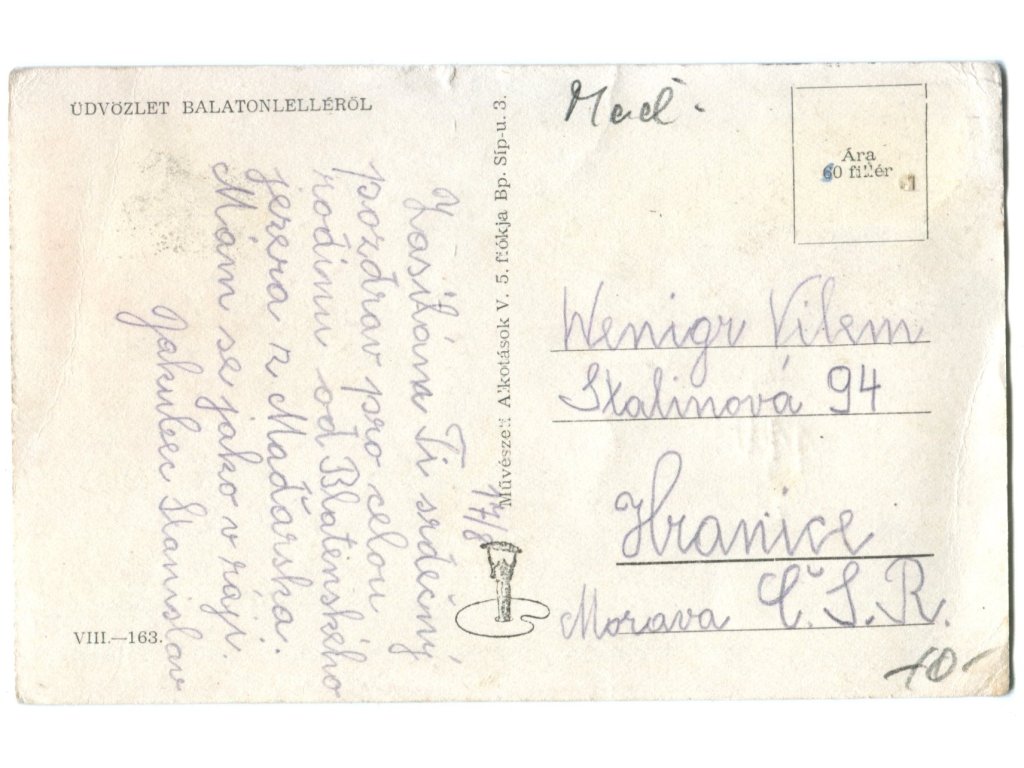 ÜDVÖZLET BALATONLELLÉRŐL
17/8
Zasílám Ti srdečný
pozdrav pro celou
rodinu od Blatenského
jezera z Maďarska.
Mám se jako v ráji.
Jakubec Stanislav
VIII.—163.
Művészeti Alkotások V. 5. fiókja Bp. Síp-u. 3.
Maď.
Ára
60 fillér
Wenigr Vilem
Stalinová 94
Hranice
Morava Č.S.R.
10-